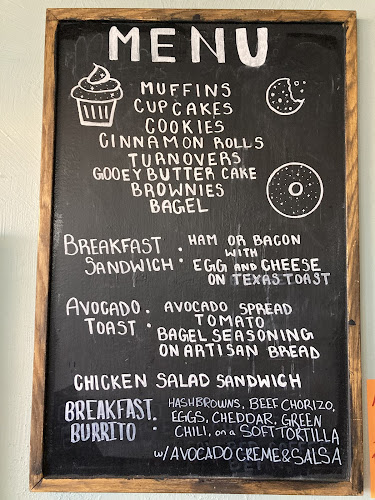 MENU
MUFFINS
CUPCAKES
COOKIES
CINNAMON ROLLS
TURNOVERS
GOOEY BUTTER CAKE
BROWNIES
BAGEL
BREAKFAST SANDWICH : HAM OR BACON
WITH
EGG AND CHEESE
ON TEXAS TOAST
AVOCADO TOAST : AVOCADO SPREAD
TOMATO
BAGEL SEASONING
ON ARTISAN BREAD
CHICKEN SALAD SANDWICH
BREAKFAST BURRITO : HASHBROWNS, BEEF CHORIZO,
EGGS, CHEDDAR, GREEN
CHILI, on a SOFT TORTILLA
w/ AVOCADO CREME & SALSA